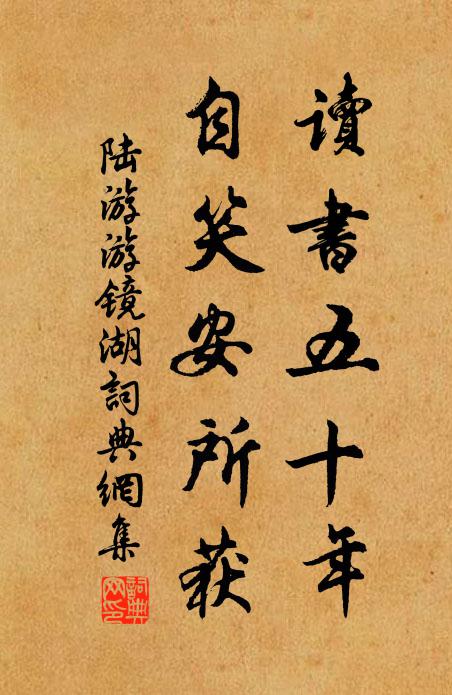 讀書五十年
自笑安所获
陆游游镜湖詞典網集
詞典网印